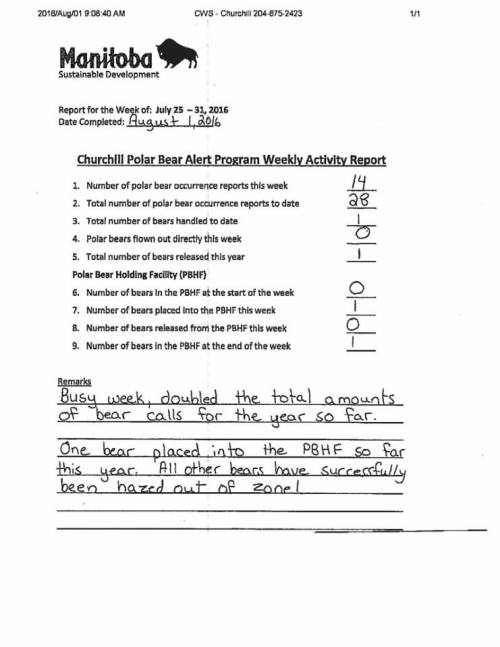 2016/Aug/01 9:08:40 AM CWS - Churchill 204-675-2423 1/1
Manitoba
Sustainable Development
Report for the Week of: July 25 – 31, 2016
Date Completed: August 1, 2016
Churchill Polar Bear Alert Program Weekly Activity Report
1. Number of polar bear occurrence reports this week 14
2. Total number of polar bear occurrence reports to date 28
3. Total number of bears handled to date 1
4. Polar bears flown out directly this week 0
5. Total number of bears released this year 1
Polar Bear Holding Facility (PBHF)
6. Number of bears in the PBHF at the start of the week 0
7. Number of bears placed into the PBHF this week 1
8. Number of bears released from the PBHF this week 0
9. Number of bears in the PBHF at the end of the week 1
Remarks
Busy week, doubled the total amounts
of bear calls for the year so far.
One bear placed into the PBHF so far
this year. All other bears have successfully
been hazed out of zone!